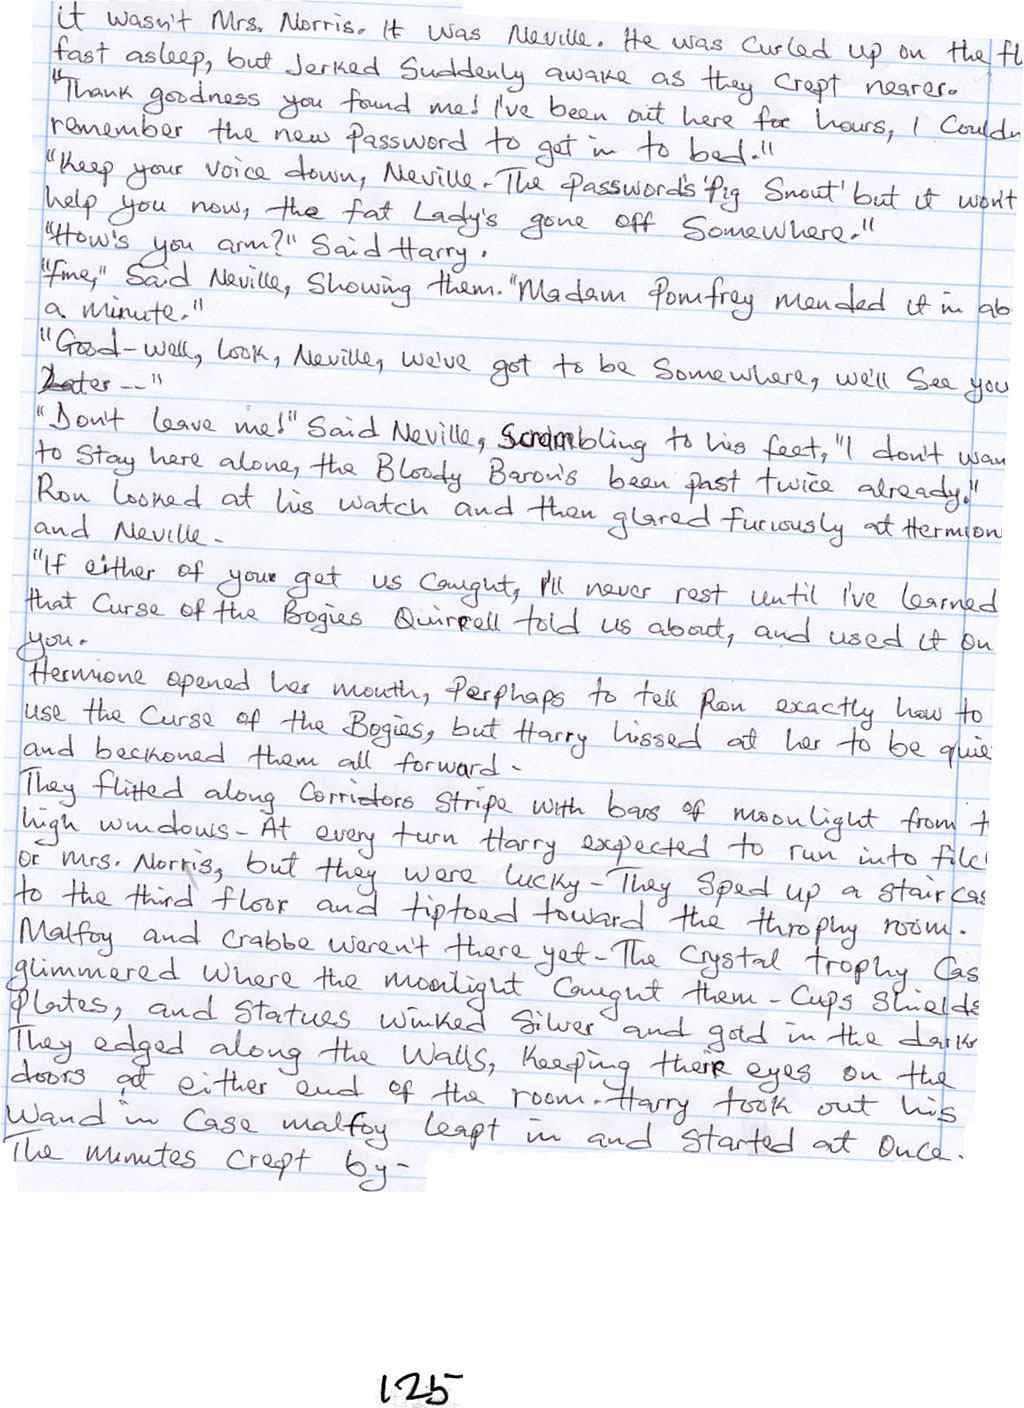 it wasn't Mrs. Norris. It was Neville. He was Curled up on the fl
fast asleep, but Jerked Suddenly awake as they Crept nearer.
"Thank goodness you found me! I've been out here for hours, I Couldn
remember the new Password to get in to bed."
"Keep your voice down, Neville. The Password's 'Pig Snout' but it won't
help you now, the fat Lady's gone off Somewhere."
"How's you arm?" Said Harry.
"fine," Said Neville, Showing them. "Madam Pomfrey mended it in ab
a minute."
"Good-well, look, Neville, we've got to be Somewhere, we'll See you
Later --"
"Don't leave me!" Said Neville, Scrambling to his feet, "I don't wan
to Stay here alone, the Bloody Baron's been past twice already."
Ron looked at his watch and then glared furiously at Hermion
and Neville.
"If either of your get us Caught, I'll never rest until I've learned
that Curse of the Bogies Quirrell told us about, and used it on
you.
Hermione opened her mouth, Perphaps to tell Ron exactly how to
use the Curse of the Bogies, but Harry hissed at her to be quie
and beckoned them all forward.
They flitted along Corridors Stripe with bars of moonlight from t
high windows. At every turn Harry expected to run into filc
or Mrs. Norris, but they were lucky. They Sped up a stair cas
to the third floor and tiptoed toward the throphy room.
Malfoy and Crabbe weren't there yet. The Crystal trophy Cas
glimmered where the moonlight Caught them. Cups Shields
Plates, and Statues winked Silver and gold in the dark
They edged along the Walls, Keeping their eyes on the
doors at either end of the room. Harry took out his
Wand in Case malfoy leapt in and Started at Once.
The minutes crept by-
125